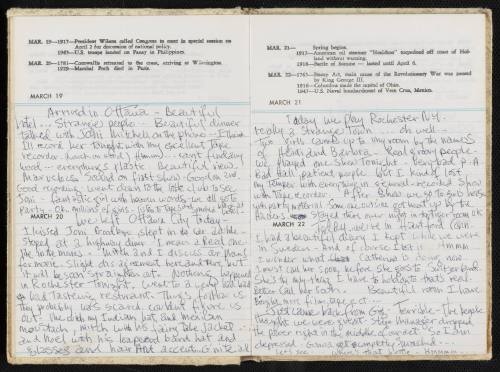 MAR. 19—1917—President Wilson called Congress to meet in special session on
April 2 for discussion of national policy.
1945—U.S. troops landed on Panay in Philippines.
MAR. 20—1781—Cornwallis retreated to the coast, arriving at Wilmington.
1929—Marshal Foch died in Paris.
MARCH 19
Arrived in Ottawa - Beautiful
hotel... Strange people - Beautiful dinner
talked with Joni Mitchell on the phone - I think
Ill record her tonight with my excellent tape
recorder (knock on wood) (Hmmm)... cant find any
head - everythings plastic - Beautiful view
Marvelous Sound on first show - Good
Good recording went down to the little club to see
Joni - fantastic girl with heaven words - we all go to
Party. Oh millions of girls
MARCH 20
We left Ottawa City today
I kissed Joni Goodbye slept in the car awhile -
stoped at a highway diner I mean a Real one
like in the movies - Mitch and I discuss our plans
for movie. Slight diet of nearest here and there, but
it will be Nothing happened
in Rochester tonight. Went to a very
bad bad tasteing restaurant. Thugs follow us
they probably was scared, couldnt figure us
out - Me with my Indian hat and mexican
moustach, mitch with his fairy tale Jacket -
and Noel with his leapered band hat and
glasses and hour Hot accent. G'nite all
MAR. 21— Spring begins.
1917—American oil steamer “Healdton” torpedoed off coast of Holland
without warning.
1918—Battle of Somme — lasted until April 6.
MAR. 22—1765—Stamp Act, main cause of the Revolutionary War was passed
by King George III.
1816—Columbus made the capitol of Ohio.
1847—U.S. Naval bombardment of Vera Cruz, Mexico.
MARCH 21
Today we play Rochester N.Y.
really a Strange Town .... oh well...
Two girls came up to my room by the names
of Heidi and Barbara - Real groove people -
we played one show tonight - Very bad P.A
Bad Hall, patient people but I kind of lost
my temper with everything in general - recorded Show
on tape recorder. After Show we go to find drinks
with party material. Some asc
stayed there over night
MARCH 22
Today were in Hartford Conn.
I had a beautiful diary I kept while we were
in Sweden but of course I lost it Hmmm
I wonder what Catherina is doing now
I must call her soon, before she goes to Switzerland.
She's my thing. I have to hold onto that's real
better call her both. Beautiful room I have
Bought mini film tape ect....
Just came back from Gig - terrible - the people
thought we were great. Stage manager dropped
the power right in the middle of concert so I am
depressed - Gonna get completely smashed -
Let's see where's that bottle - Hmmm...